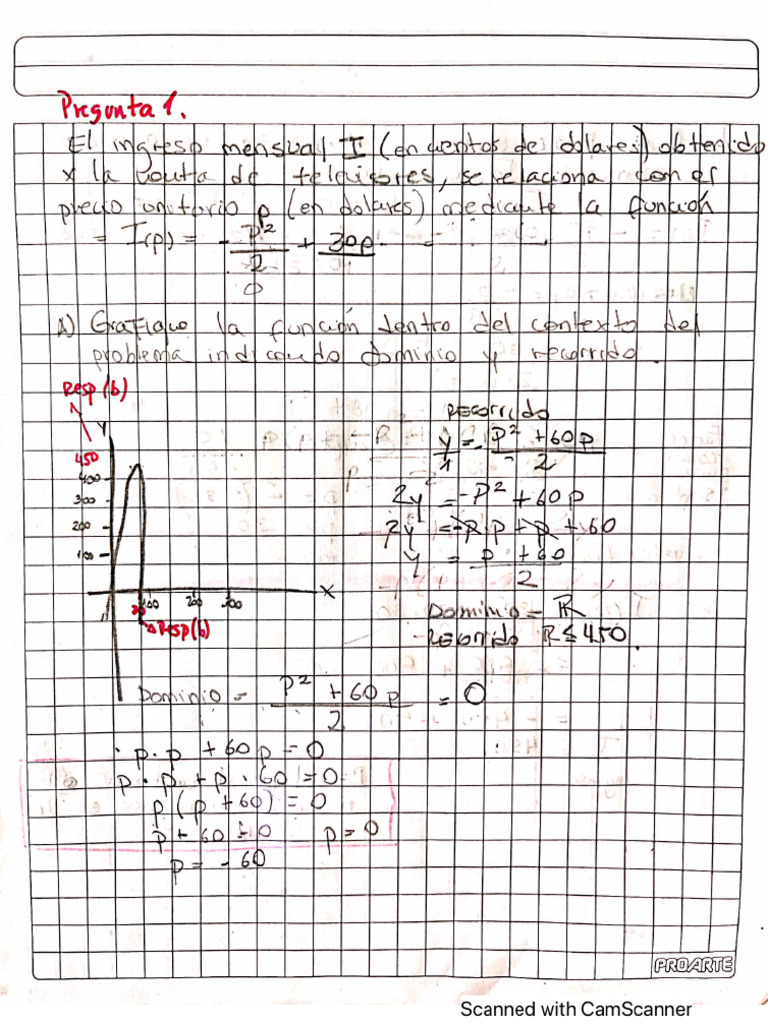 Pregunta 1.
El ingreso mensual I (en cientos de dolares) obtenido
x la venta de televisores, se relaciona con el
precio unitario p (en dolares) mediante la función
= I(p) = - p²/2 + 30p =
0
A) Grafique la función dentro del contexto del
problema indicando dominio y recorrido.
Resp (b)
Y
450
400
300
200
100
30 100 200 300 X
Resp(b)
Recorrido
y/1 = - p² + 60p / 2
2y = -p² + 60p
2y = -p.p + p + 60
y = p + 60 / 2
Dominio = R
Recorrido R ≤ 450.
Dominio = p² + 60p / 2 = 0
p.p + 60p = 0
p.p + p.60 = 0
p(p + 60) = 0
p + 60 = 0 p = 0
p = - 60
PROARTE
Scanned with CamScanner